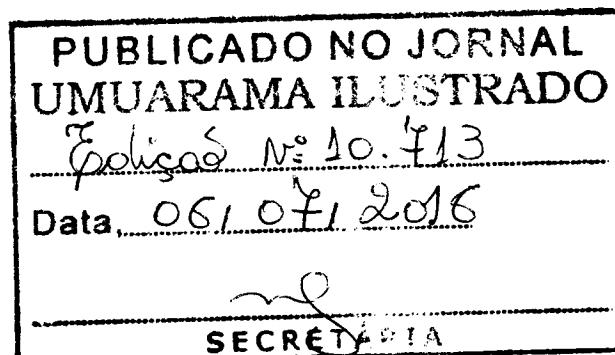 PUBLICADO NO JORNAL
UMUARAMA ILUSTRADO
Edição Nº 10.713
Data, 06/07/2016
SECRETARIA